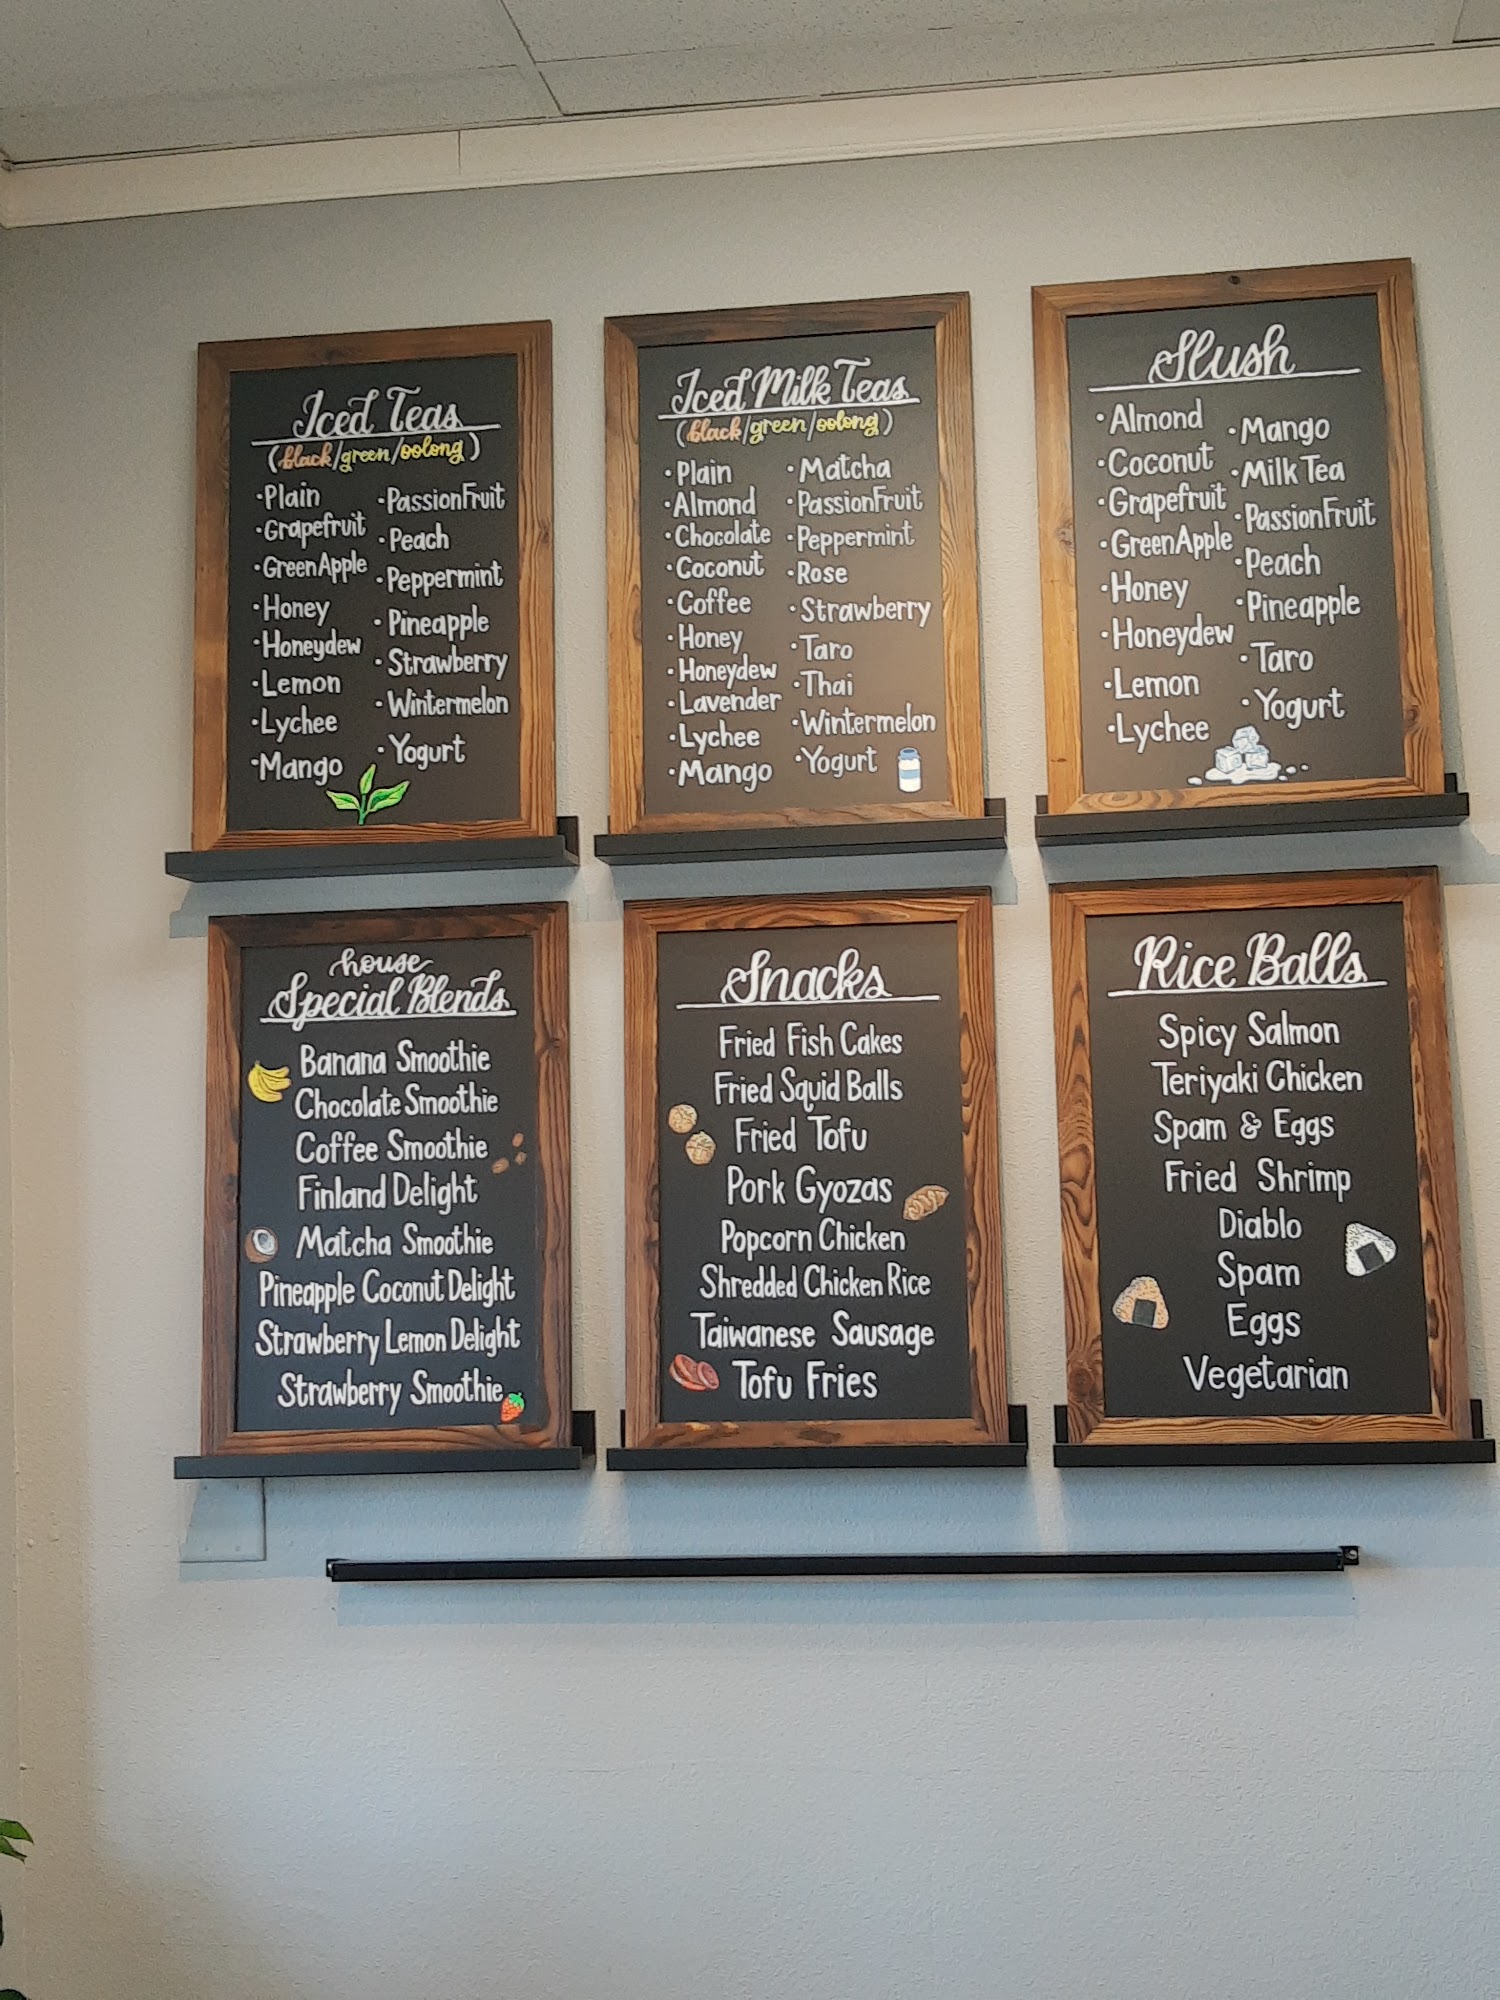 Iced Teas
(black/green/oolong)
·Plain
·Grapefruit
·Green Apple
·Honey
·Honeydew
·Lemon
·Lychee
·Mango
·PassionFruit
·Peach
·Peppermint
·Pineapple
·Strawberry
·Wintermelon
·Yogurt
Iced Milk Teas
(black/green/oolong)
·Plain
·Almond
·Chocolate
·Coconut
·Coffee
·Honey
·Honeydew
·Lavender
·Lychee
·Mango
·Matcha
·PassionFruit
·Peppermint
·Rose
·Strawberry
·Taro
·Thai
·Wintermelon
·Yogurt
Slush
·Almond
·Coconut
·Grapefruit
·Green Apple
·Honey
·Honeydew
·Lemon
·Lychee
·Mango
·Milk Tea
·PassionFruit
·Peach
·Pineapple
·Taro
·Yogurt
house
Special Blends
Banana Smoothie
Chocolate Smoothie
Coffee Smoothie
Finland Delight
Matcha Smoothie
Pineapple Coconut Delight
Strawberry Lemon Delight
Strawberry Smoothie
Snacks
Fried Fish Cakes
Fried Squid Balls
Fried Tofu
Pork Gyozas
Popcorn Chicken
Shredded Chicken Rice
Taiwanese Sausage
Tofu Fries
Rice Balls
Spicy Salmon
Teriyaki Chicken
Spam & Eggs
Fried Shrimp
Diablo
Spam
Eggs
Vegetarian